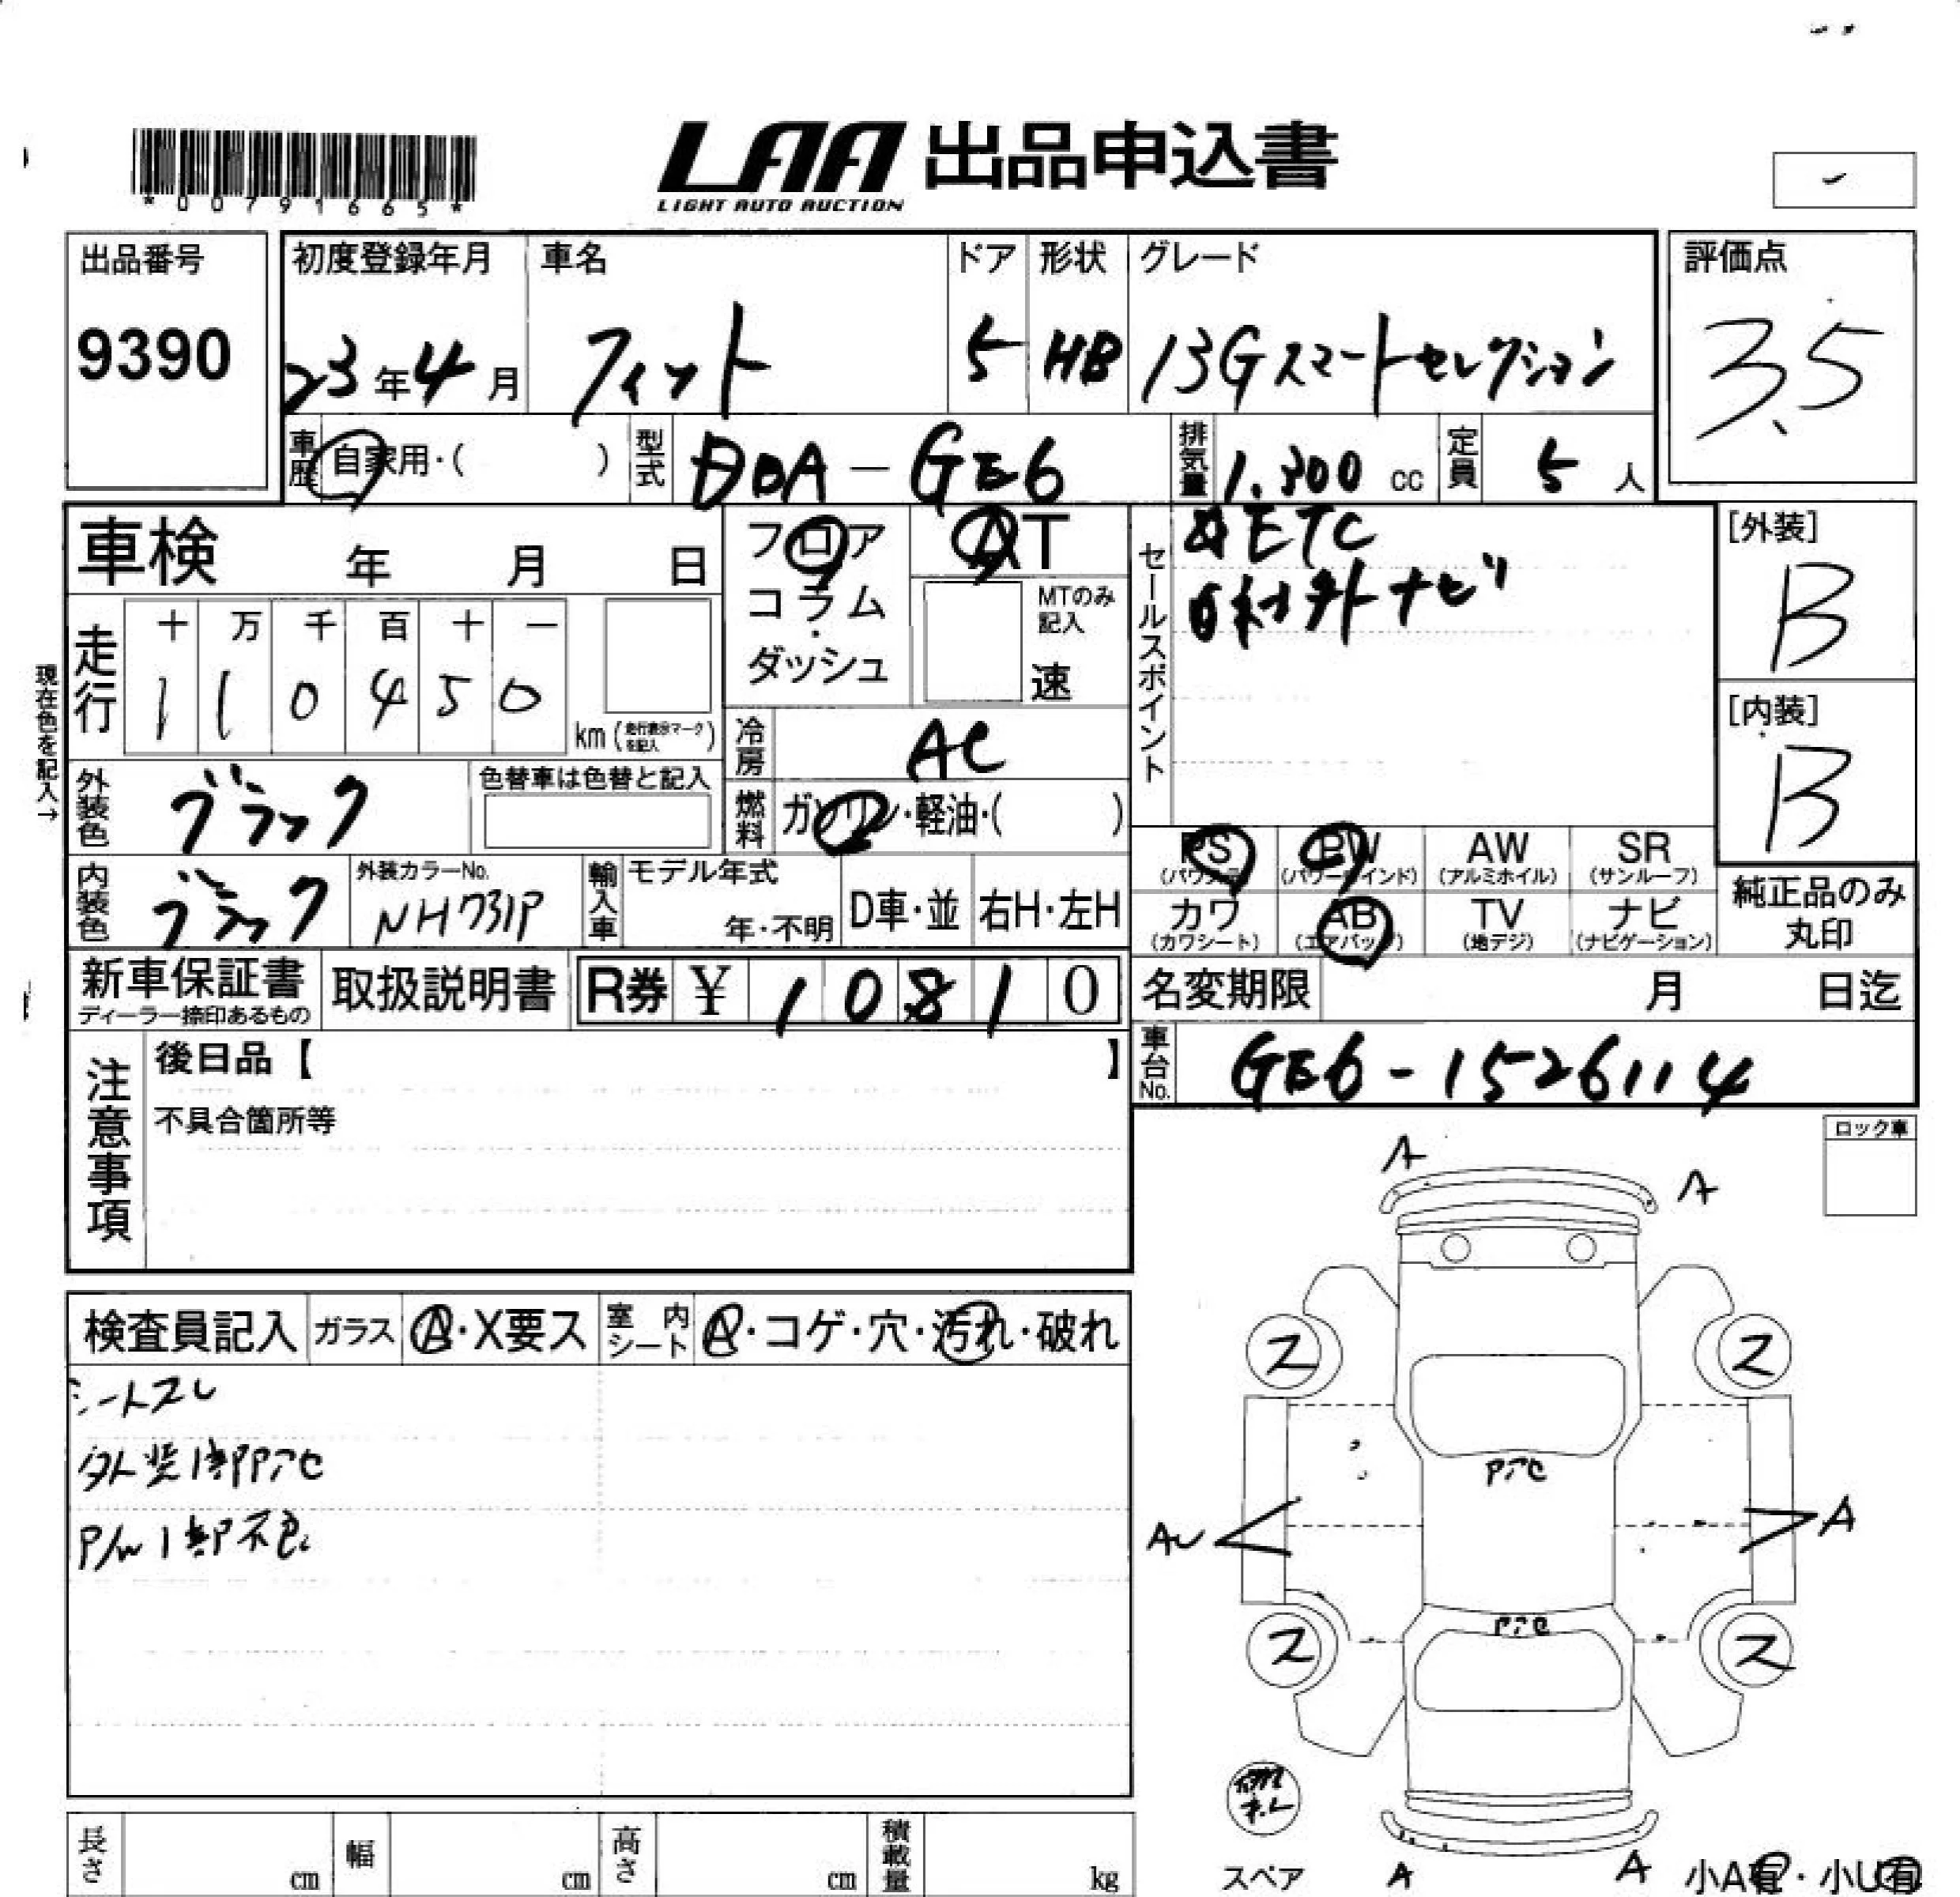 *00791665*
LAA 出品申込書
LIGHT AUTO AUCTION
出品番号
9390
初度登録年月
23年4月
車名
フィット
ドア
5
形状
HB
グレード
13Gスマートセレクション
評価点
3.5
車歴
自家用・( )
型式
DBA-GE6
排気量
1.300 cc
定員
5 人
車検 年 月 日
フロア
コラム
・
ダッシュ
AT
MTのみ
記入
速
セールスポイント
ETC
ナビ
[外装]
B
[内装]
B
現在色を記入→
走行
十 万 千 百 十 一
1 1 0 4 5 0
km (走行表示マークを記入)
冷房
AC
外装色
ブラック
色替車は色替と記入
燃料
ガソリン・軽油・( )
PS
(パワステ)
PW
(パワーウインド)
AW
(アルミホイル)
SR
(サンルーフ)
カワ
(カワシート)
AB
(エアバッグ)
TV
(地デジ)
ナビ
(ナビゲーション)
純正品のみ
丸印
内装色
ブラック
外装カラーNo.
NH731P
輸入車
モデル年式
年・不明
D車・並
右H・左H
新車保証書
ディーラー捺印あるもの
取扱説明書
R券 ¥ 10810
名変期限 月 日迄
車台No.
GE6-1526114
注意事項
後日品【 】
不具合箇所等
ロック車
検査員記入
ガラス
A・X要ス
室内
シート
A・コゲ・穴・汚れ・破れ
シートスレ
外装1部
P/W1部不良
A
A
ス
ス
AU
A
ス
ス
スペア
A
A
小A有・小U有
長さ cm
幅 cm
高さ cm
積載量 kg